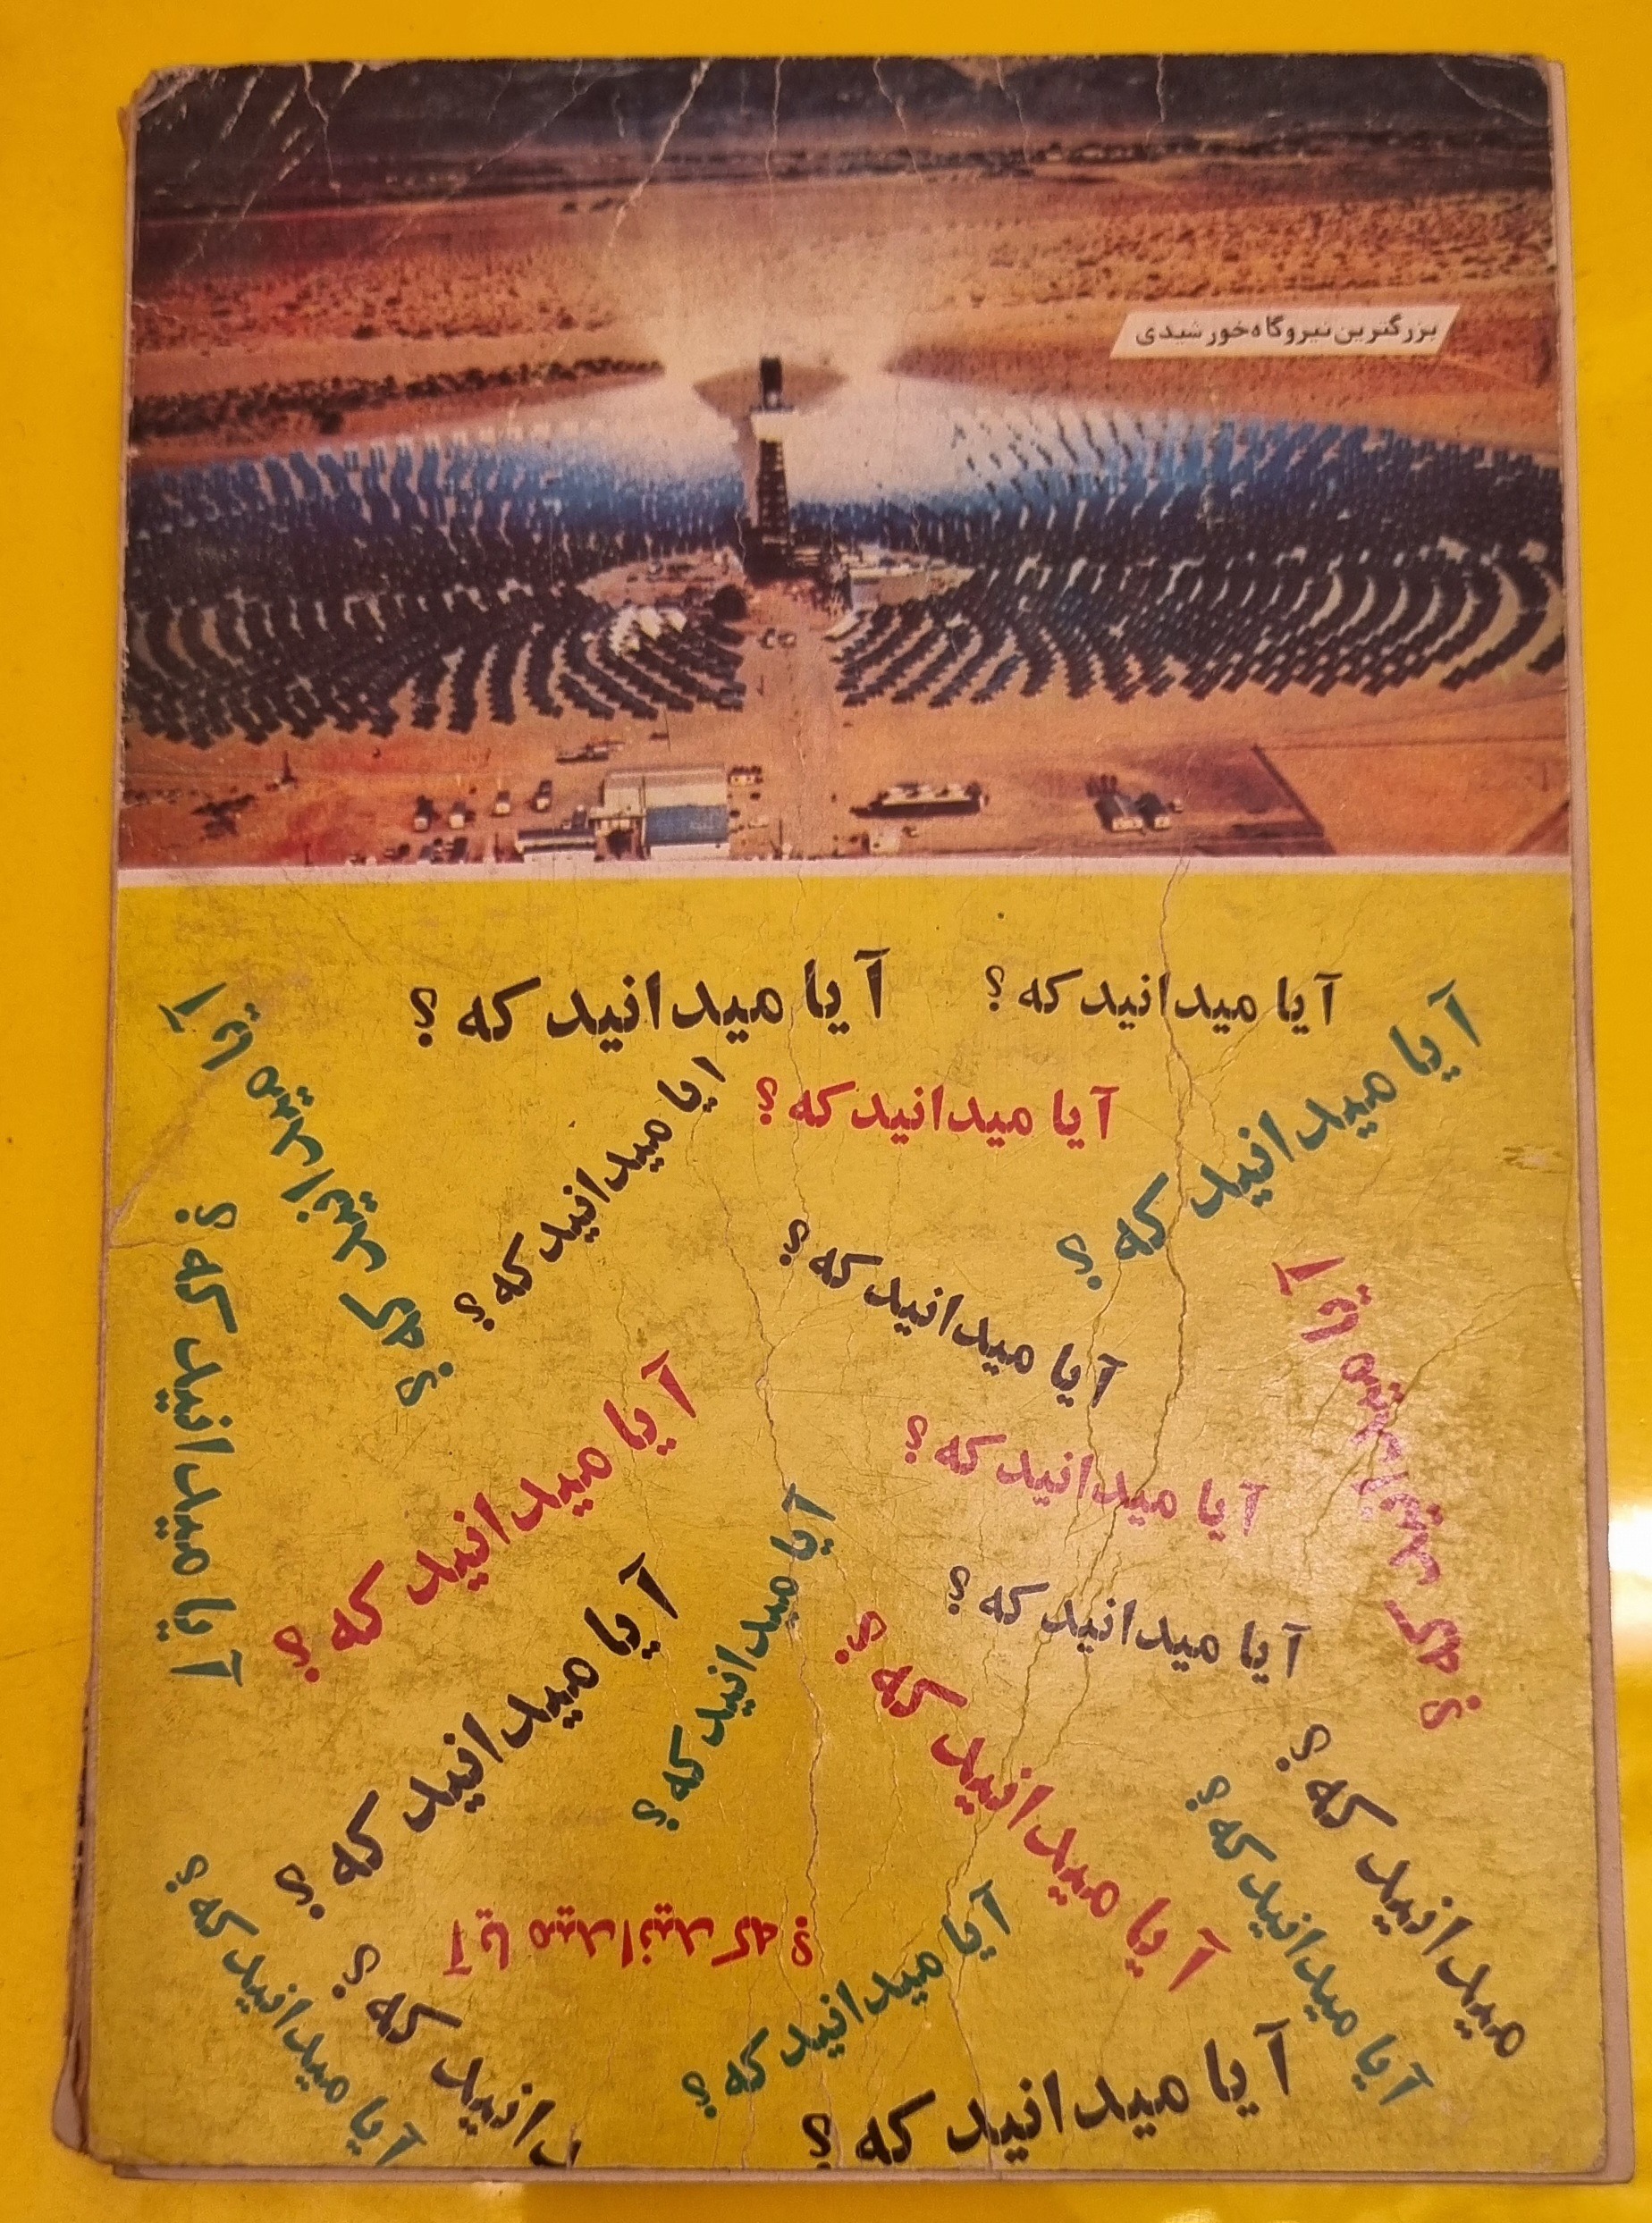 بزرگترین نیروگاه خورشیدی
آیا میدانید که ؟
آیا میدانید که ؟
آیا میدانید که ؟
آیا میدانید که ؟
آیا میدانید که ؟
آیا میدانید که ؟
آیا میدانید که ؟
آیا میدانید که ؟
آیا میدانید که ؟
آیا میدانید که ؟
آیا میدانید که ؟
آیا میدانید که ؟
آیا میدانید که ؟
آیا میدانید که ؟
آیا میدانید که ؟
آیا میدانید که ؟
میدانید که ؟
آیا میدانید که ؟
آیا میدانید که ؟
آیا میدانید که ؟
دانید که ؟
آیا میدانید که ؟
آیا میدانید که ؟